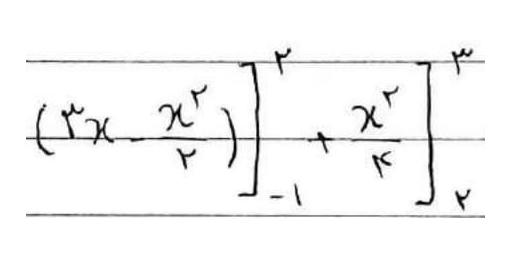 (۳x - x^۲/۲)]_{-۱}^{۲} + x^۲/۴]_{۲}^{۳}